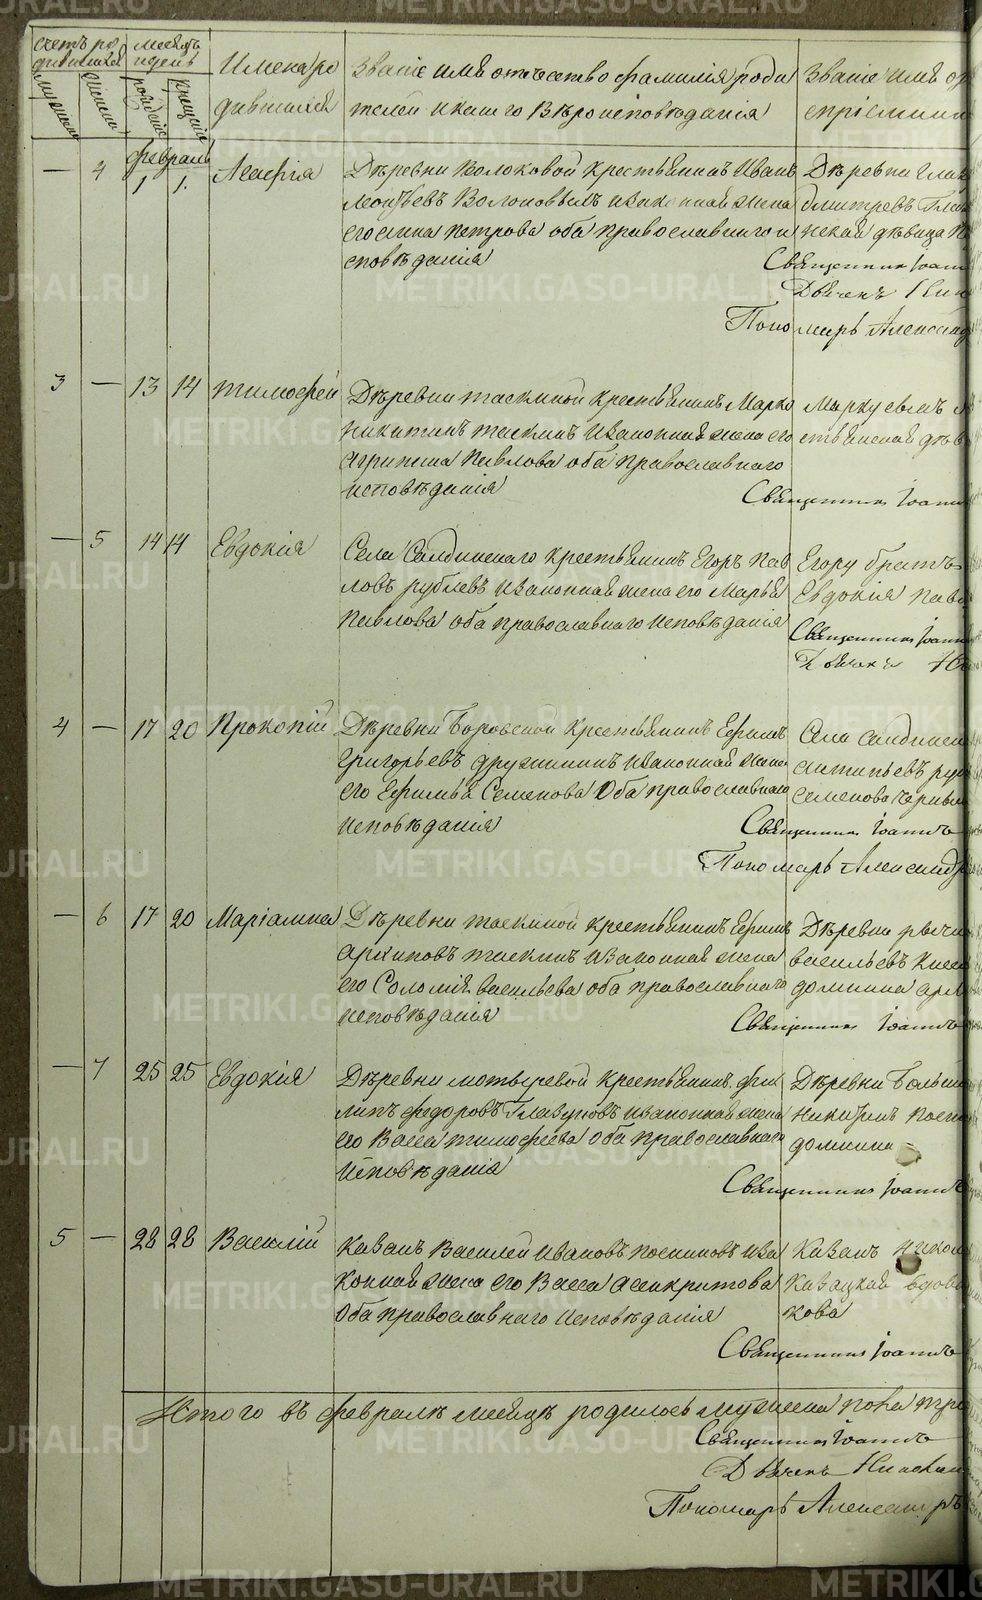 счетъ ро
дившихся
месяцъ
и день
мужеска
женска
рожденіе
крещенія
Имена ро
дившихся
Званіе имя отчество фамилія роди
телей и каго Вѣроисповѣданія
Званіе имя от
февраль
— 4 1 1. Агафія
Дѣревни Волоковой Крестьянинъ Иванъ
Леонтьевъ Волоковыхъ и законная жена
его Анна Петрова оба православнаго и
сповѣданія
Дѣревни
Дмитревъ
дѣвица
Священникъ Іоан
Дьячекъ
Пономарь Александ
3 — 13 14 Тимофей
Дѣревни Таскиной Крестьянинъ Марко
Никитинъ Таскинъ и законная жена его
Агрипина Павлова оба православнаго
исповѣданія
Священникъ Іоанн
— 5 14 14 Евдокія
Села Салдинскаго Крестьянинъ Егоръ Пав
ловъ Рублевъ и законная жена его Марья
Павлова оба православнаго исповѣданія
Егору братъ
Евдокія Павл
Священникъ Іоанн
Дьячекъ
4 — 17 20 Прокопій
Дѣревни Боровской Крестьянинъ Ефимъ
Григорьевъ Дружининъ и законная жена
его Ефимья Семенова Оба православнаго
исповѣданія
Села Салдинск
Антипьевъ Руб
Семенова
Священникъ Іоаннъ
Пономарь Александръ
— 6 17 20 Маріамна
Дѣревни Таскиной Крестьянинъ Ефимъ
Архиповъ Таскинъ и законная жена
его Соломія Васильева оба православнаго
исповѣданія
Дѣревни
Васильевъ
Домнина
Священникъ Іоаннъ
— 7 25 25 Евдокія
Дѣревни Мотыревой Крестьянинъ Фи
липъ Федоровъ Глазуновъ и законная жена
его Васса Тимофеева Оба православнаго
Исповѣданія
Дѣревни
Домнина
Священникъ Іоаннъ
5 — 28 28 Василій
Казакъ Василей Ивановъ Посниковъ и за
конная жена его Васса Асинкритова
Оба православнаго исповѣданія
Казакъ
Казацкая вдова
кова
Священникъ Іоаннъ
Итого въ февралѣ месяцѣ родилось мужеска пола тр
Священникъ Іоаннъ
Дьячекъ
Пономарь Александръ
METRIKI.GASO-URAL.RU